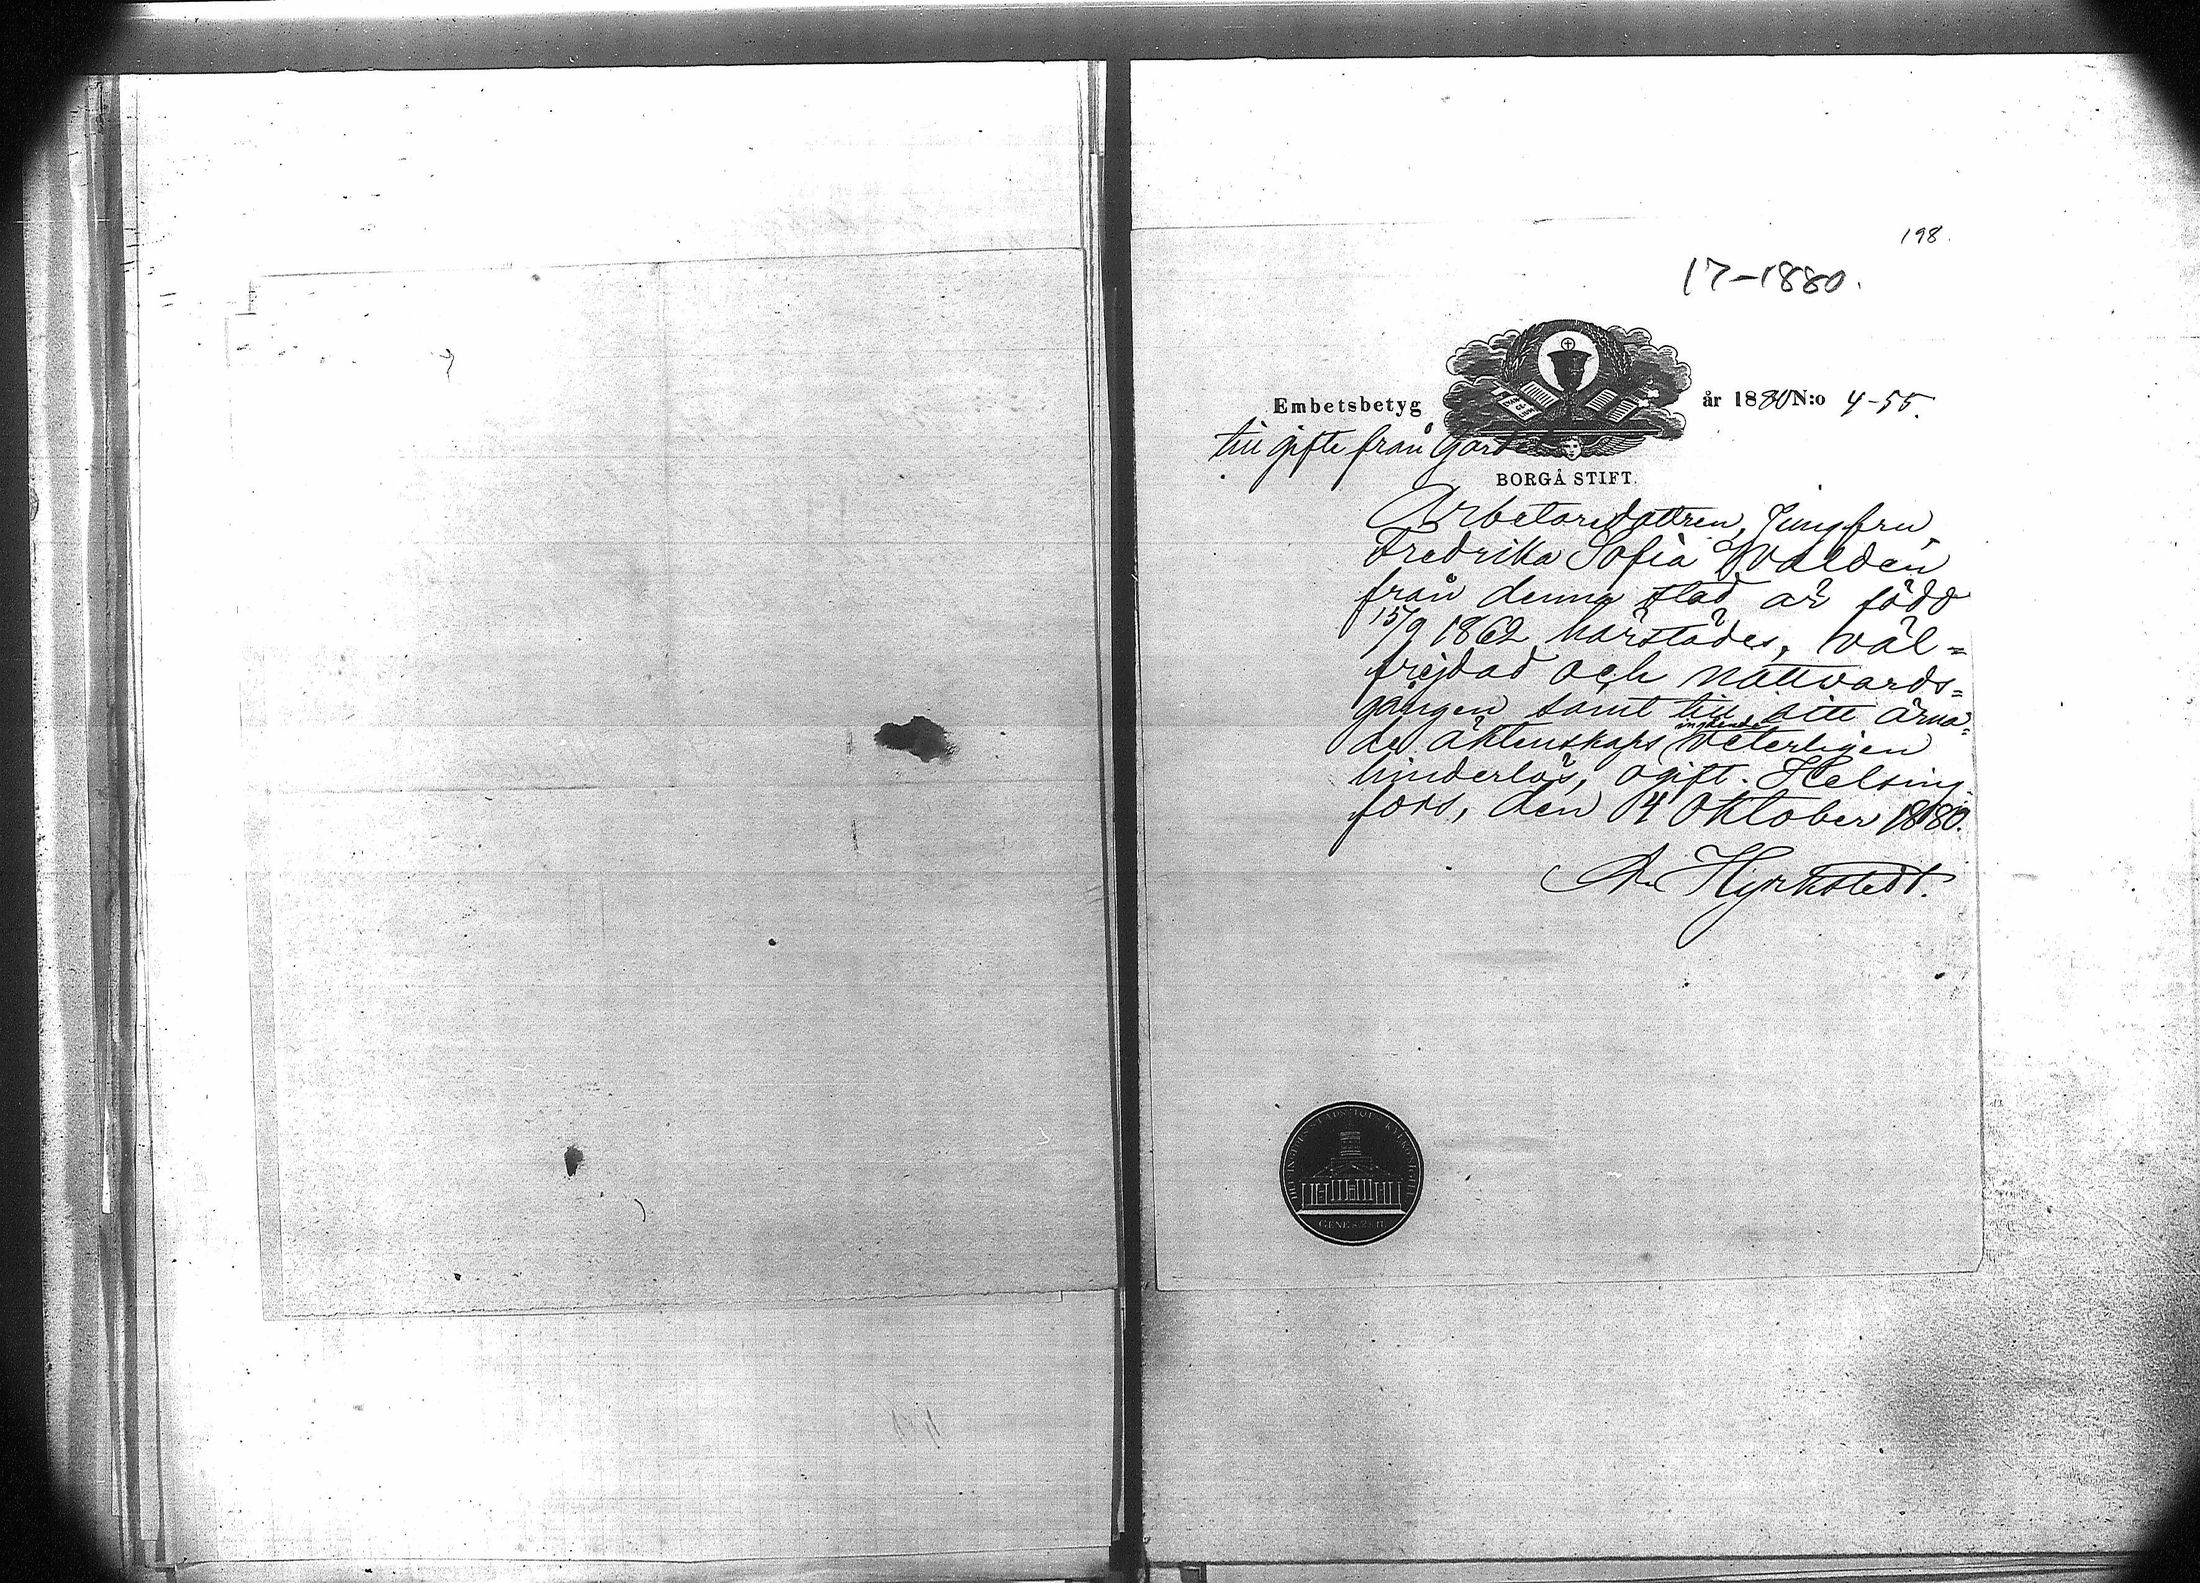 198.
17-1880.
Embetsbetyg
år 1880 N:o 4-55.
till gifte från Gard
BORGÅ STIFT.
Arbetaredottren, Jungfru
Fredrika Sofia Waldén
från denna stad är född
15/9 1862 härstädes, väl=
frejdad och nattvards=
gången samt till sitt ärna=
de äktenskaps ingående veterligen
hinderlös, ogift. Helsing=
fors, den 14 Oktober 1880.
Hyrkstedt.
GENES. 28.17.